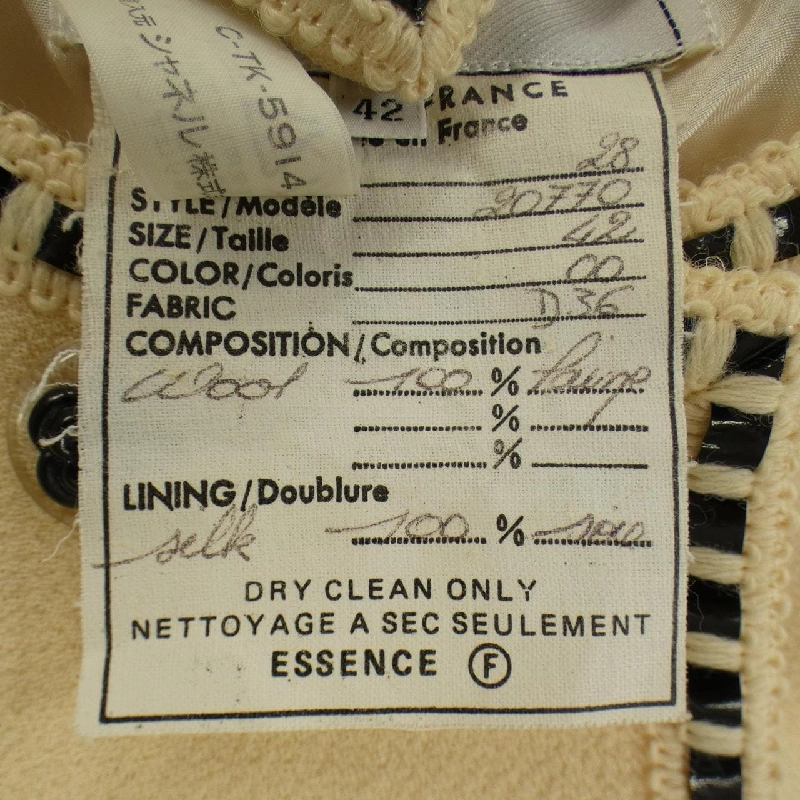 シャネル株式
C-TK-5914
42
FRANCE
France
28
STYLE/Modèle 20770
SIZE/Taille 42
COLOR/Coloris 00
FABRIC D36
COMPOSITION/Composition
Wool 100 % laine
%
%
LINING/Doublure
silk 100 % soie
DRY CLEAN ONLY
NETTOYAGE A SEC SEULEMENT
ESSENCE F